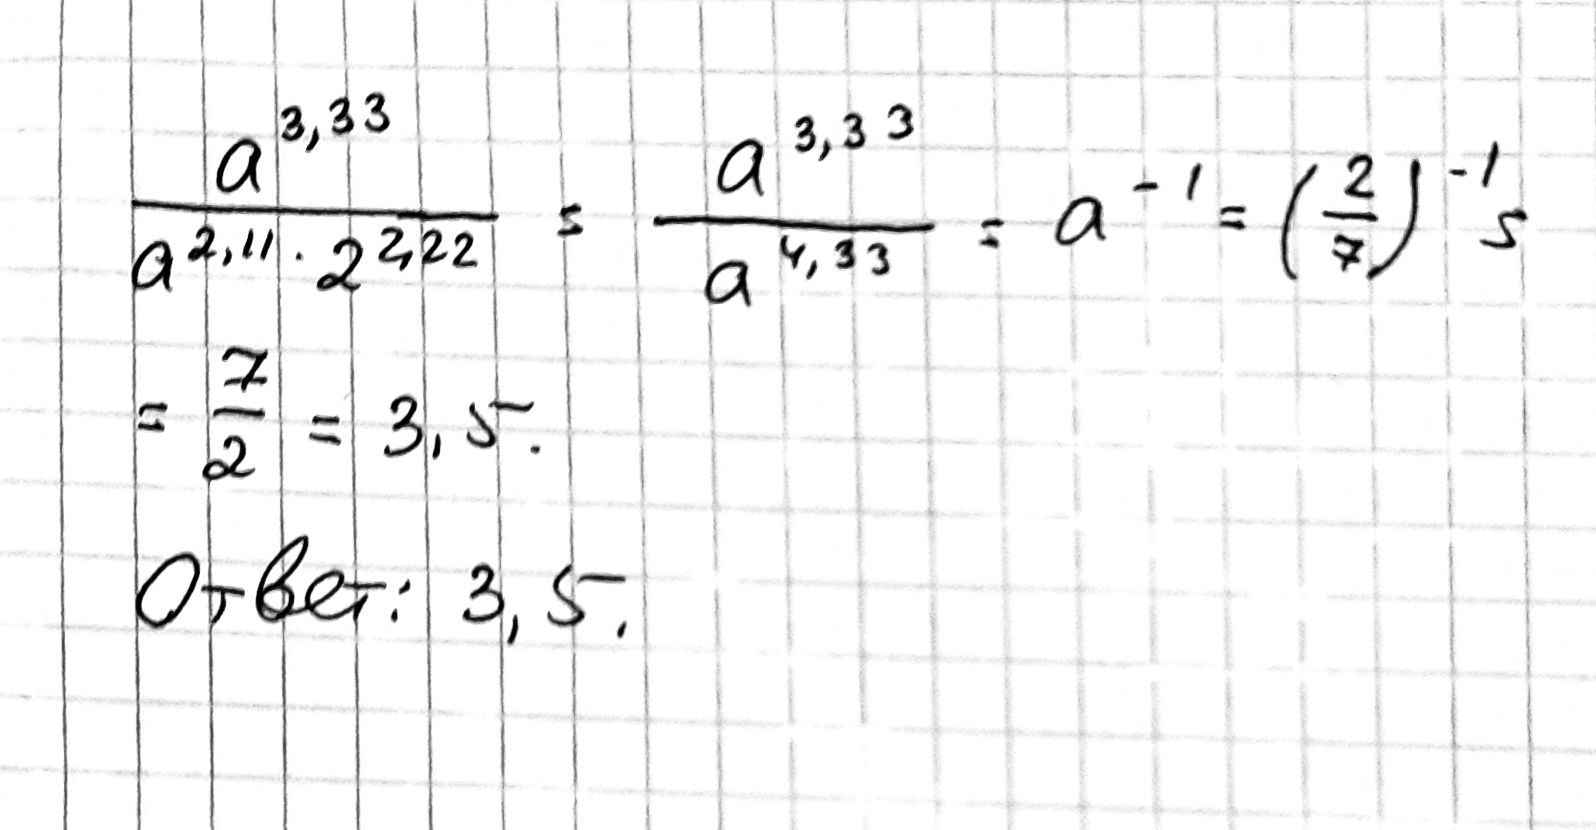 a^3,33 / (a^2,11 · 2^2,22) = a^3,33 / a^4,33 = a^-1 = (2/7)^-1 =
= 7/2 = 3,5.
Ответ: 3,5.